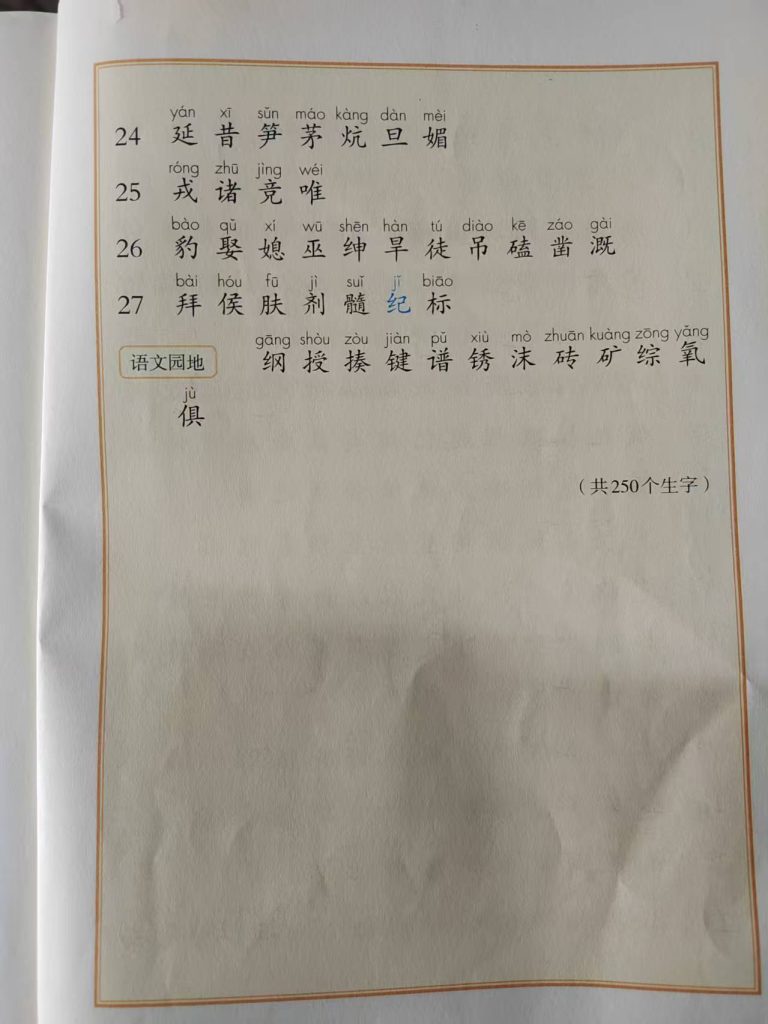 yán xī sǔn máo kàng dàn mèi
24 延 昔 笋 茅 炕 旦 媚
róng zhū jìng wéi
25 戎 诸 竞 唯
bào qǔ xí wū shēn hàn tú diào kē záo gài
26 豹 娶 媳 巫 绅 旱 徒 吊 磕 凿 溉
bài hóu fū jì suǐ jǐ biāo
27 拜 侯 肤 剂 髓 纪 标
gāng shòu zòu jiàn pǔ xiù mò zhuān kuàng zōng yǎng
语文园地 纲 授 揍 键 谱 锈 沫 砖 矿 综 氧
jù
俱
（共250个生字）